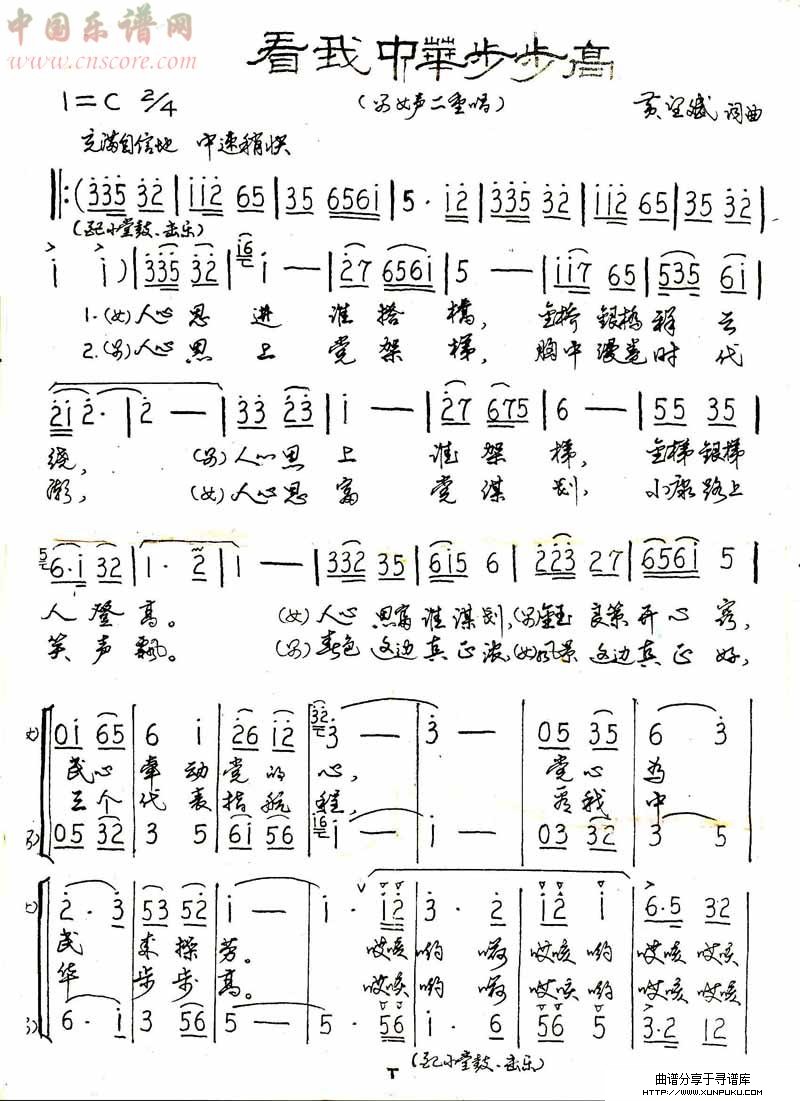 中国乐谱网
www.cnscore.com
看我中华步步高
1=C 2/4
（男女声二重唱）
黄望斌 词曲
充满自信地 中速稍快
‖:(3̇3̇5̇ 3̇2̇ | i i 2̇ 65 | 35 656i | 5· i2̇ | 3̇3̇5̇ 3̇2̇ | i i 2̇ 65 | 35 3̇2̇ |
(配小堂鼓、击乐)
i i) | 3̇3̇5̇ 3̇2̇ | i — | 2̇7 656i | 5 — | i i 7 65 | 535 6i |
1.(女)人心思进谁搭桥， 金桥银桥祥云
2.(男)人心思上党架梯， 胸中漫卷时代
2̇i 2̇· | 2̇ — | 3̇3̇ 2̇3̇ | i — | 2̇7 675 | 6 — | 55 35 |
绕， (男)人心思上谁架梯， 金梯银梯
潮， (女)人心思富党谋划， 小康路上
6·i 32 | 1· 2 | 1 — | 332 35 | 6i5 6 | 2̇2̇3̇ 27 | 656i 5 |
人登高。 (女)人心思富谁谋划，(男)金玉良策开心窍，
笑声飘。 (男)春色这边真正浓，(女)风景这边真正好，
女) 0i 65 | 6 i | 2̇6 i2̇ | 3̇ — | 3̇ — | 05 35 | 6 3̇ |
民心牵动党的心， 党心为
三个代表指航程， 看我中
男) 05 32 | 3 5 | 6i 56 | i — | i — | 03 32 | 3 5 |
女) 2̇· 3̇ | 53 52 | i — | i· i2̇ | 3̇· 2̇ | i2̇ i | 6·5 32 |
民来操劳。 哎咳哟嗬哎咳哟哎咳哎咳
华步步高。 哎咳哟嗬哎咳哟哎咳哎咳
男) 6· i | 3 56 | 5 — | 5· 56 | i· 6 | 56 5 | 3·2 12 |
(配小堂鼓、击乐)
曲谱分享于寻谱库
HTTP://WWW.XUNPUKU.COM